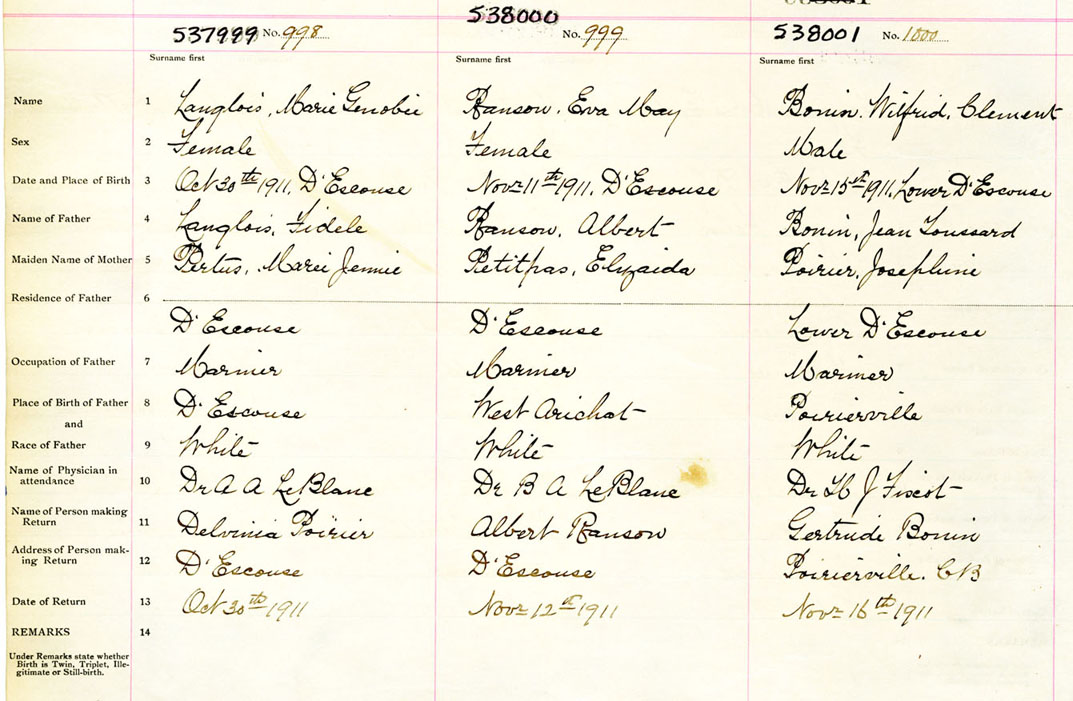 537999 No. 998
538000
No. 999
538001 No. 1000
Surname first
Surname first
Surname first
Name 1 Langlois, Marie Genobie Ranson, Eva May Bonin, Wilfrid, Clement
Sex 2 Female Female Male
Date and Place of Birth 3 Oct 30th 1911, D'Escouse Nov 11th 1911, D'Escouse Nov 15th 1911, Lower D'Escouse
Name of Father 4 Langlois, Fidele Ranson, Albert Bonin, Jean Toussard
Maiden Name of Mother 5 Pertus, Marei Jennie Petitpas, Elyzaida Poirier, Josephine
Residence of Father 6
D'Escouse D'Escouse Lower D'Escouse
Occupation of Father 7 Mariner Mariner Mariner
Place of Birth of Father 8 D'Escouse West Arichat Poirierville
and
Race of Father 9 White White White
Name of Physician in
attendance 10 Dr A A LeBlanc Dr B A LeBlanc Dr J Fiscot
Name of Person making
Return 11 Delvinia Poirier Albert Ranson Gertrude Bonin
Address of Person mak-
ing Return 12 D'Escouse D'Escouse Poirierville. CB
Date of Return 13 Oct 30th 1911 Nov 12 1911 Nov 16th 1911
REMARKS 14
Under Remarks state whether
Birth is Twin, Triplet, Ille-
gitimate or Still-birth.